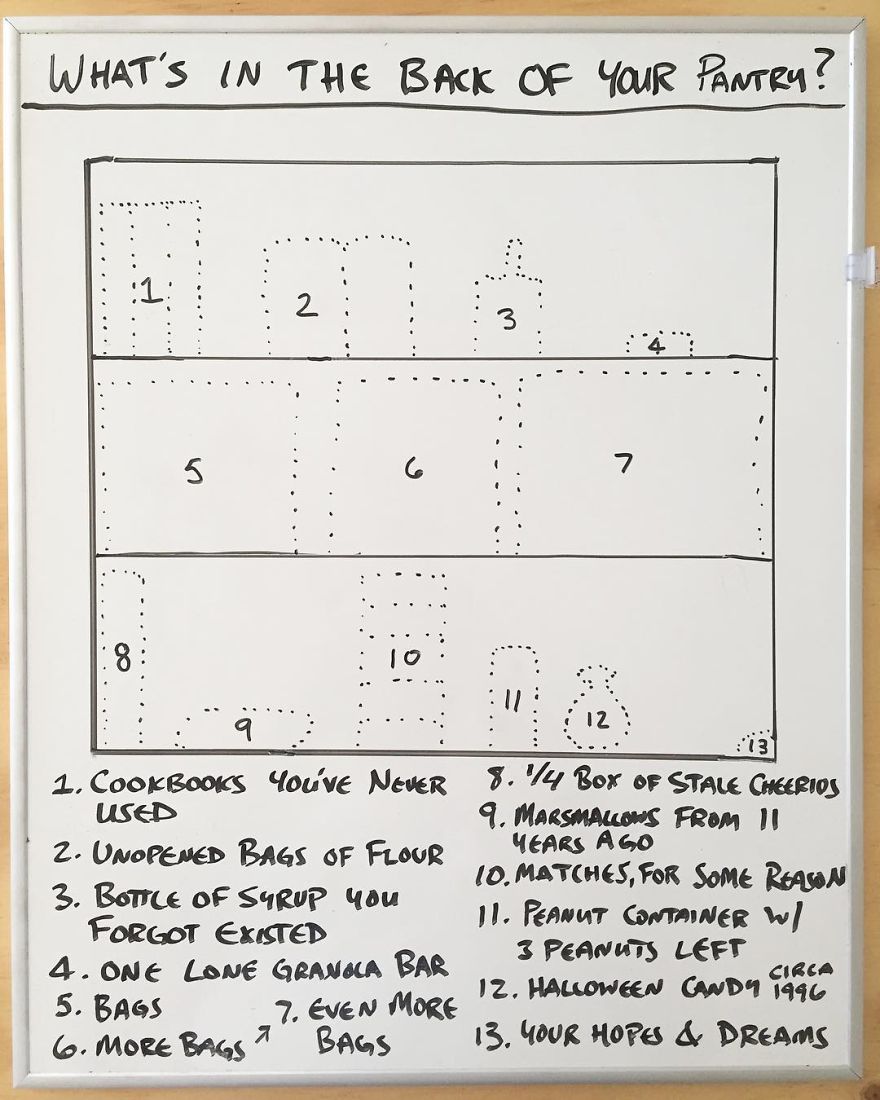 WHAT'S IN THE BACK OF YOUR PANTRY?
1
2
3
4
5
6
7
8
9
10
11
12
13
1. COOKBOOKS YOU'VE NEVER
USED
2. UNOPENED BAGS OF FLOUR
3. BOTTLE OF SYRUP YOU
FORGOT EXISTED
4. ONE LONE GRANOLA BAR
5. BAGS
6. MORE BAGS ↗
7. EVEN MORE
BAGS
8. 1/4 BOX OF STALE CHEERIOS
9. MARSMALLOWS FROM 11
YEARS AGO
10. MATCHES, FOR SOME REASON
11. PEANUT CONTAINER W/
3 PEANUTS LEFT
12. HALLOWEEN CANDY CIRCA
1996
13. YOUR HOPES & DREAMS